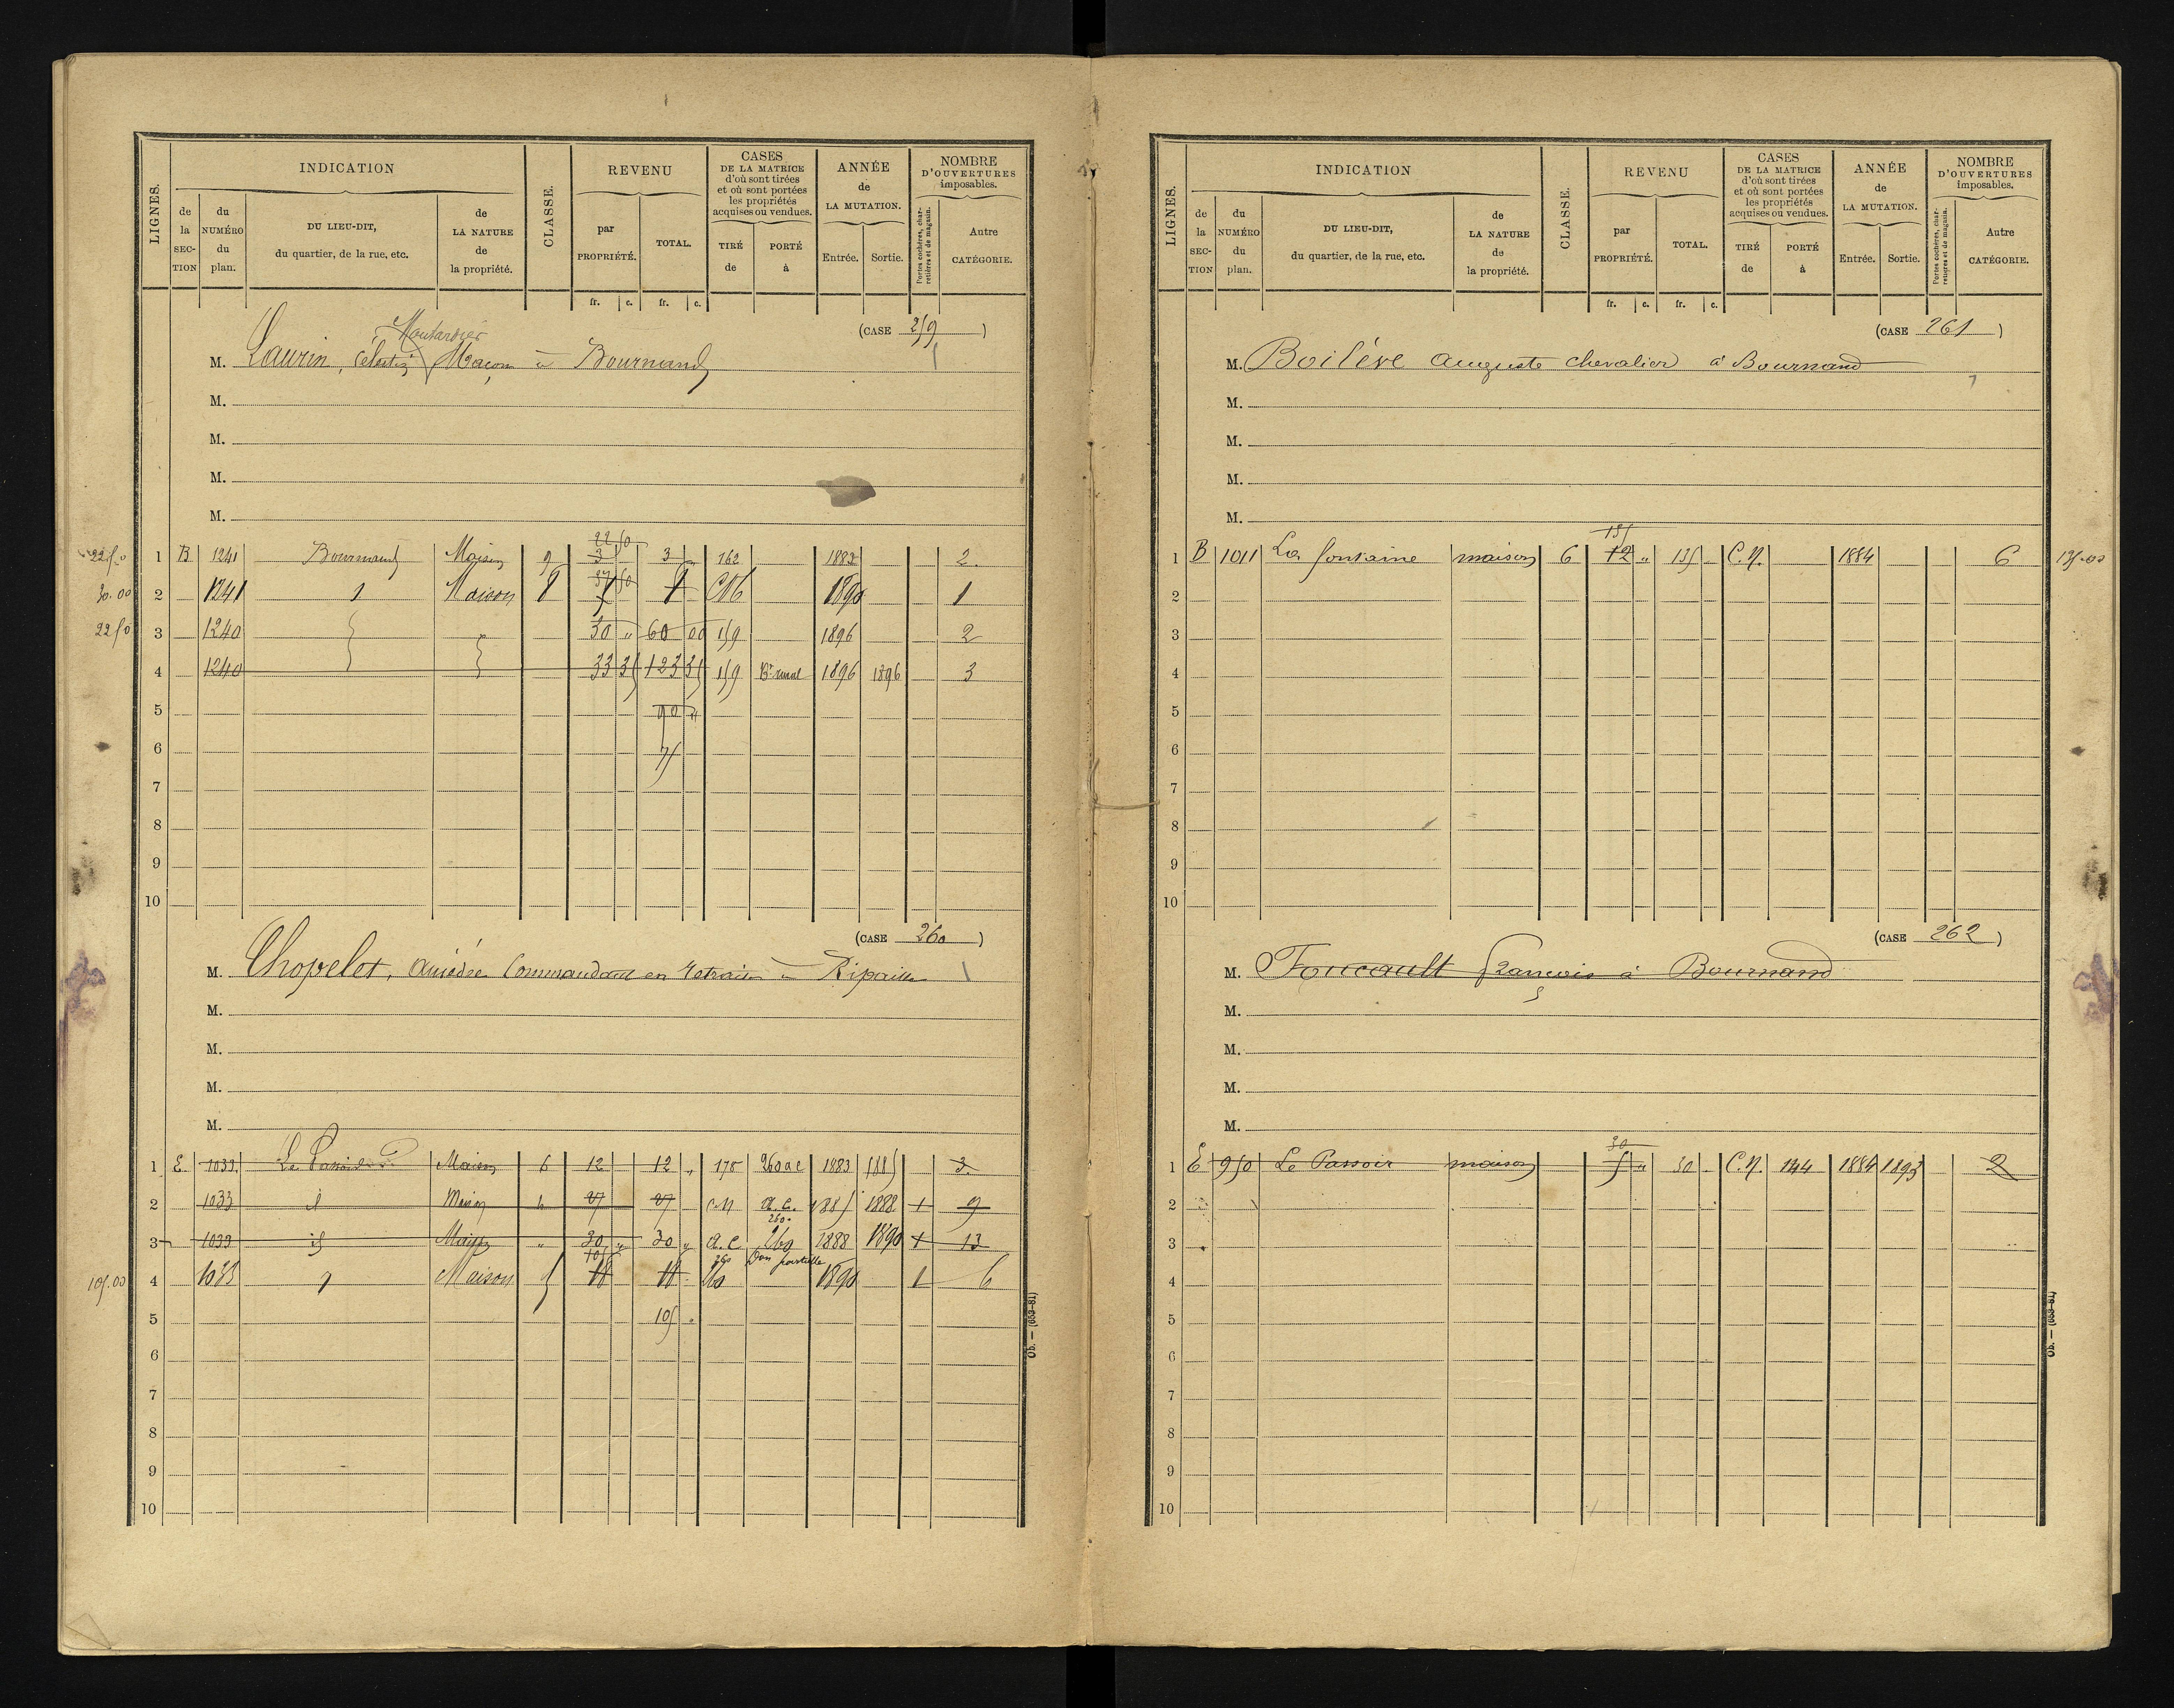 LIGNES. INDICATION CLASSE. REVENU CASES DE LA MATRICE d'où sont tirées et où sont portées les propriétés acquises ou vendues. ANNÉE de LA MUTATION. NOMBRE D'OUVERTURES imposables.
de la SECTION du NUMÉRO du plan. DU LIEU-DIT, du quartier, de la rue, etc. de LA NATURE de la propriété. par PROPRIÉTÉ. TOTAL. TIRÉ de PORTÉ à Entrée. Sortie. Portes cochères, charretières et de magasin. Autre CATÉGORIE.
fr. c. fr. c.
(CASE 259)
Moutardier
M. Laurin, Célestin Maçon à Bournand
M.
M.
M.
M.
22 50
22 50 1 B 1241 Bournand Maison 9 3 3 162 1883 2
37 50
30.00 2 1241 Maison 1890 1
22 50 3 1240 30 " 60 00 159 1896 2
4 1240 33 35 123 35 159 1896 1896 3
5 90 "
6 75
7
8
9
10
(CASE 260)
M. Chopelet, Amédée Commandant en retraite à Ripaille
M.
M.
M.
M.
1 E 1033 Maison 6 12 12 " 178 260 a c 1883 1885 3
2 1033 id Maison 27 27 C.N a.c. 1885 1888 1 9
260
3 1033 id Maison " 30 " 30 " a.c 260 1888 1890 1 13
105 260 Don partielle
105.00 4 1033 Maison 260 1890 1 6
5 105 "
6
7
8
9
10
Ob. — (683-81)
LIGNES. INDICATION CLASSE. REVENU CASES DE LA MATRICE d'où sont tirées et où sont portées les propriétés acquises ou vendues. ANNÉE de LA MUTATION. NOMBRE D'OUVERTURES imposables.
de la SECTION du NUMÉRO du plan. DU LIEU-DIT, du quartier, de la rue, etc. de LA NATURE de la propriété. par PROPRIÉTÉ. TOTAL. TIRÉ de PORTÉ à Entrée. Sortie. Portes cochères, charretières et de magasin. Autre CATÉGORIE.
fr. c. fr. c.
(CASE 261)
M. Boilève Auguste chevalier à Bournand
M.
M.
M.
M.
135
1 B 1011 La fontaine maison 6 12 " 135 C.N. 1884 6 135.00
2
3
4
5
6
7
8
9
10
(CASE 262)
M. Foucault François à Bournand
M.
M.
M.
M.
30
1 E 950 Le Passoir maison 5 " 30 C.N. 144 1884 1893 2
2
3
4
5
6
7
8
9
10
Ob. — (683-81)